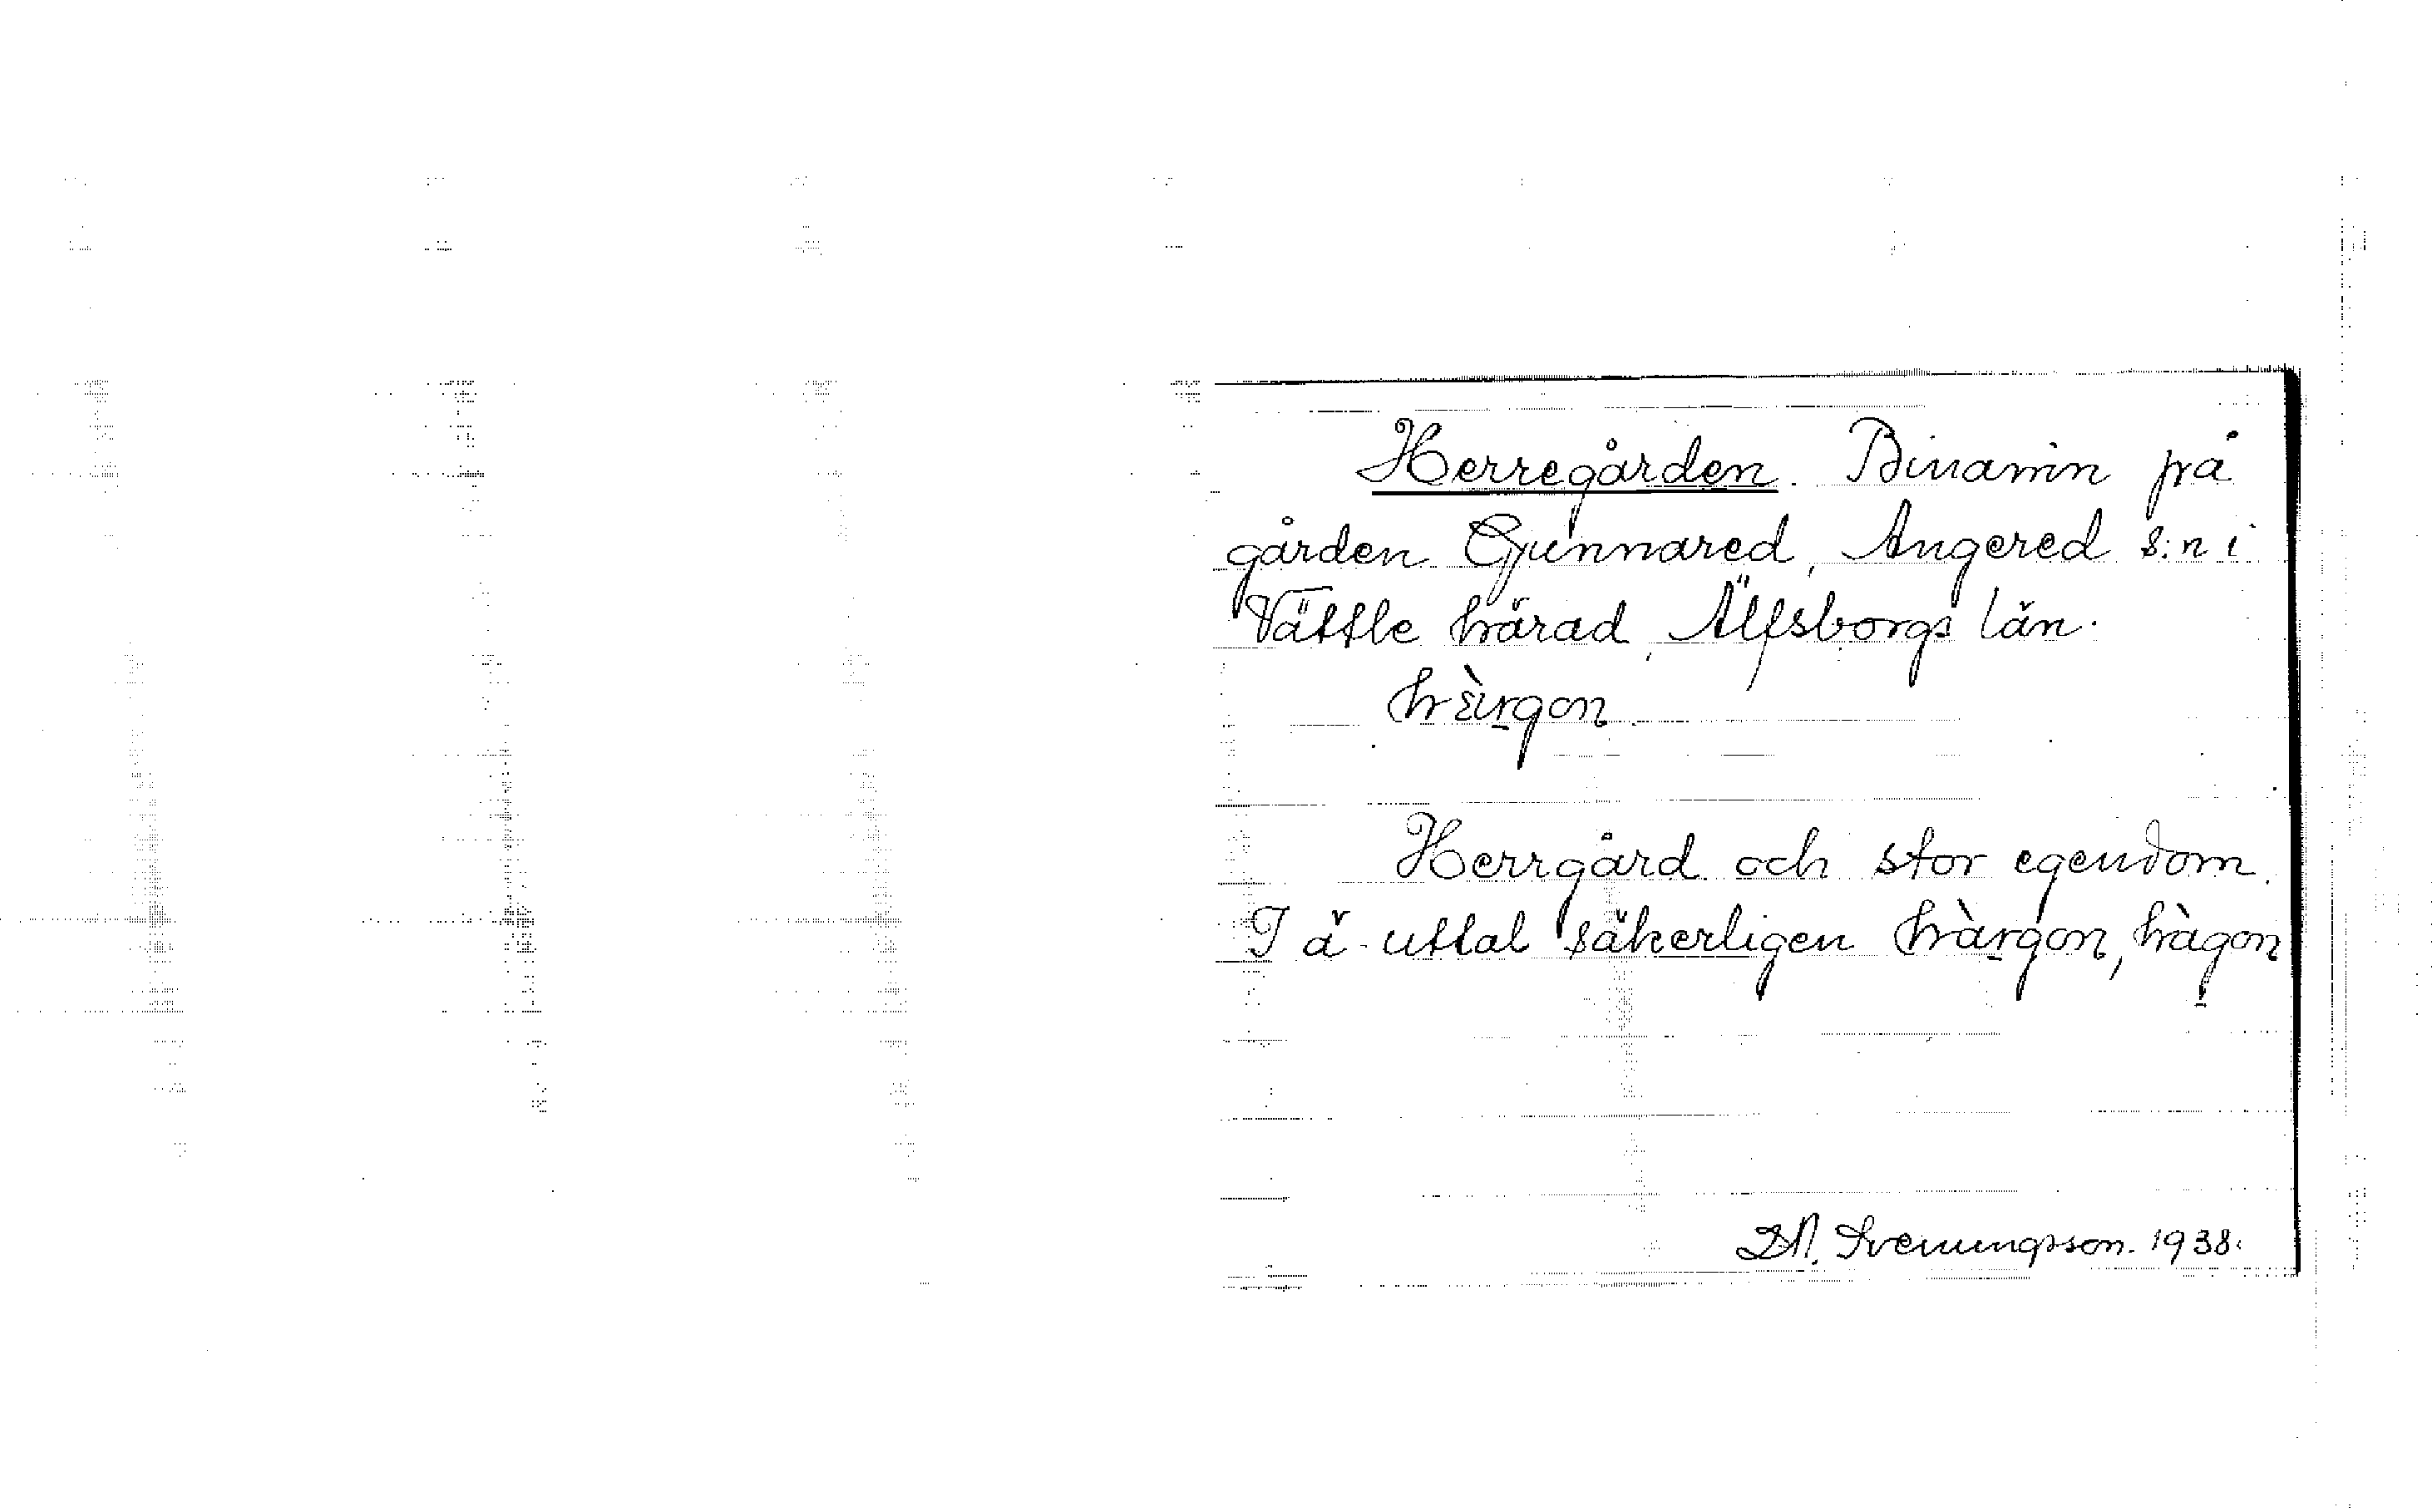 Herregården. Binamn på
gården Gunnared, Angered s:n i
Vättle härad, Älfsborgs län.
hèrgon.
Herrgård och stor egendom.
I ä-uttal säkerligen hàrgon, hàgon
Svenungsson. 1938.